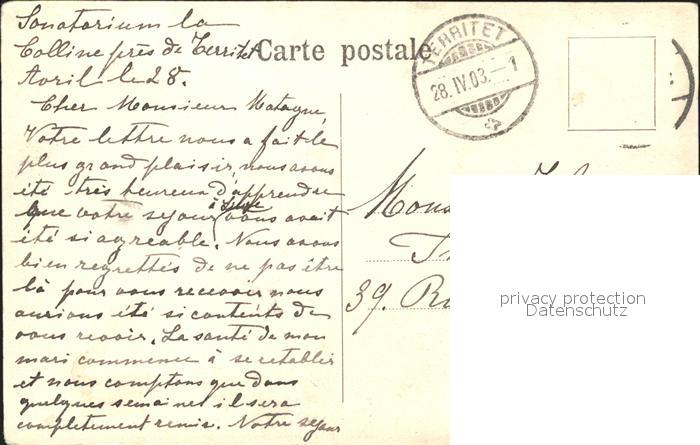 Sanatorium la
Colline près de Territet
Avril le 28.
Carte postale
TERRITET
28.IV.03.–1
Cher Monsieur Matagne,
Votre lettre nous a fait le
plus grand plaisir, nous avons
été très heureux d'apprendre
que votre séjour à vous avait
été si agréable. Nous avons
bien regrettés de ne pas être
là pour vous recevoir nous
aurions été si contents de
vous revoir. La santé de mon
mari commence à se rétablir
et nous comptons que dans
quelques semaines il sera
complètement remis. Notre séjour
39.
privacy protection
Datenschutz